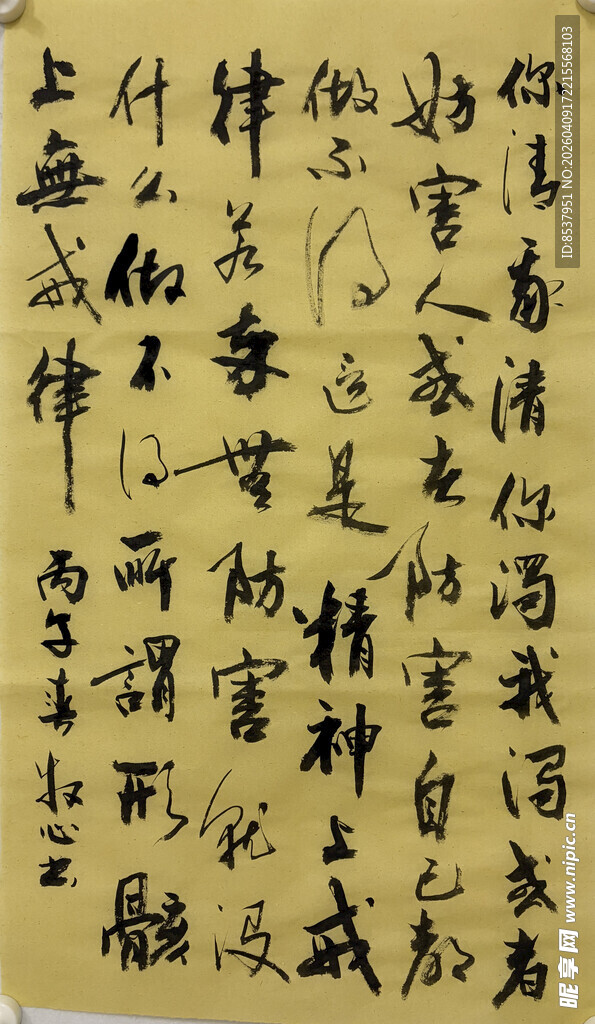 你清我清你濁我濁或者
妨害人或者防害自己都
做不得這是精神上戒
律若幸無防害就沒
什么做不得所謂形骸
上無戒律
丙午春牧心書
ID:8537951 NO:20260409172215568103
昵享网 www.nipic.cn